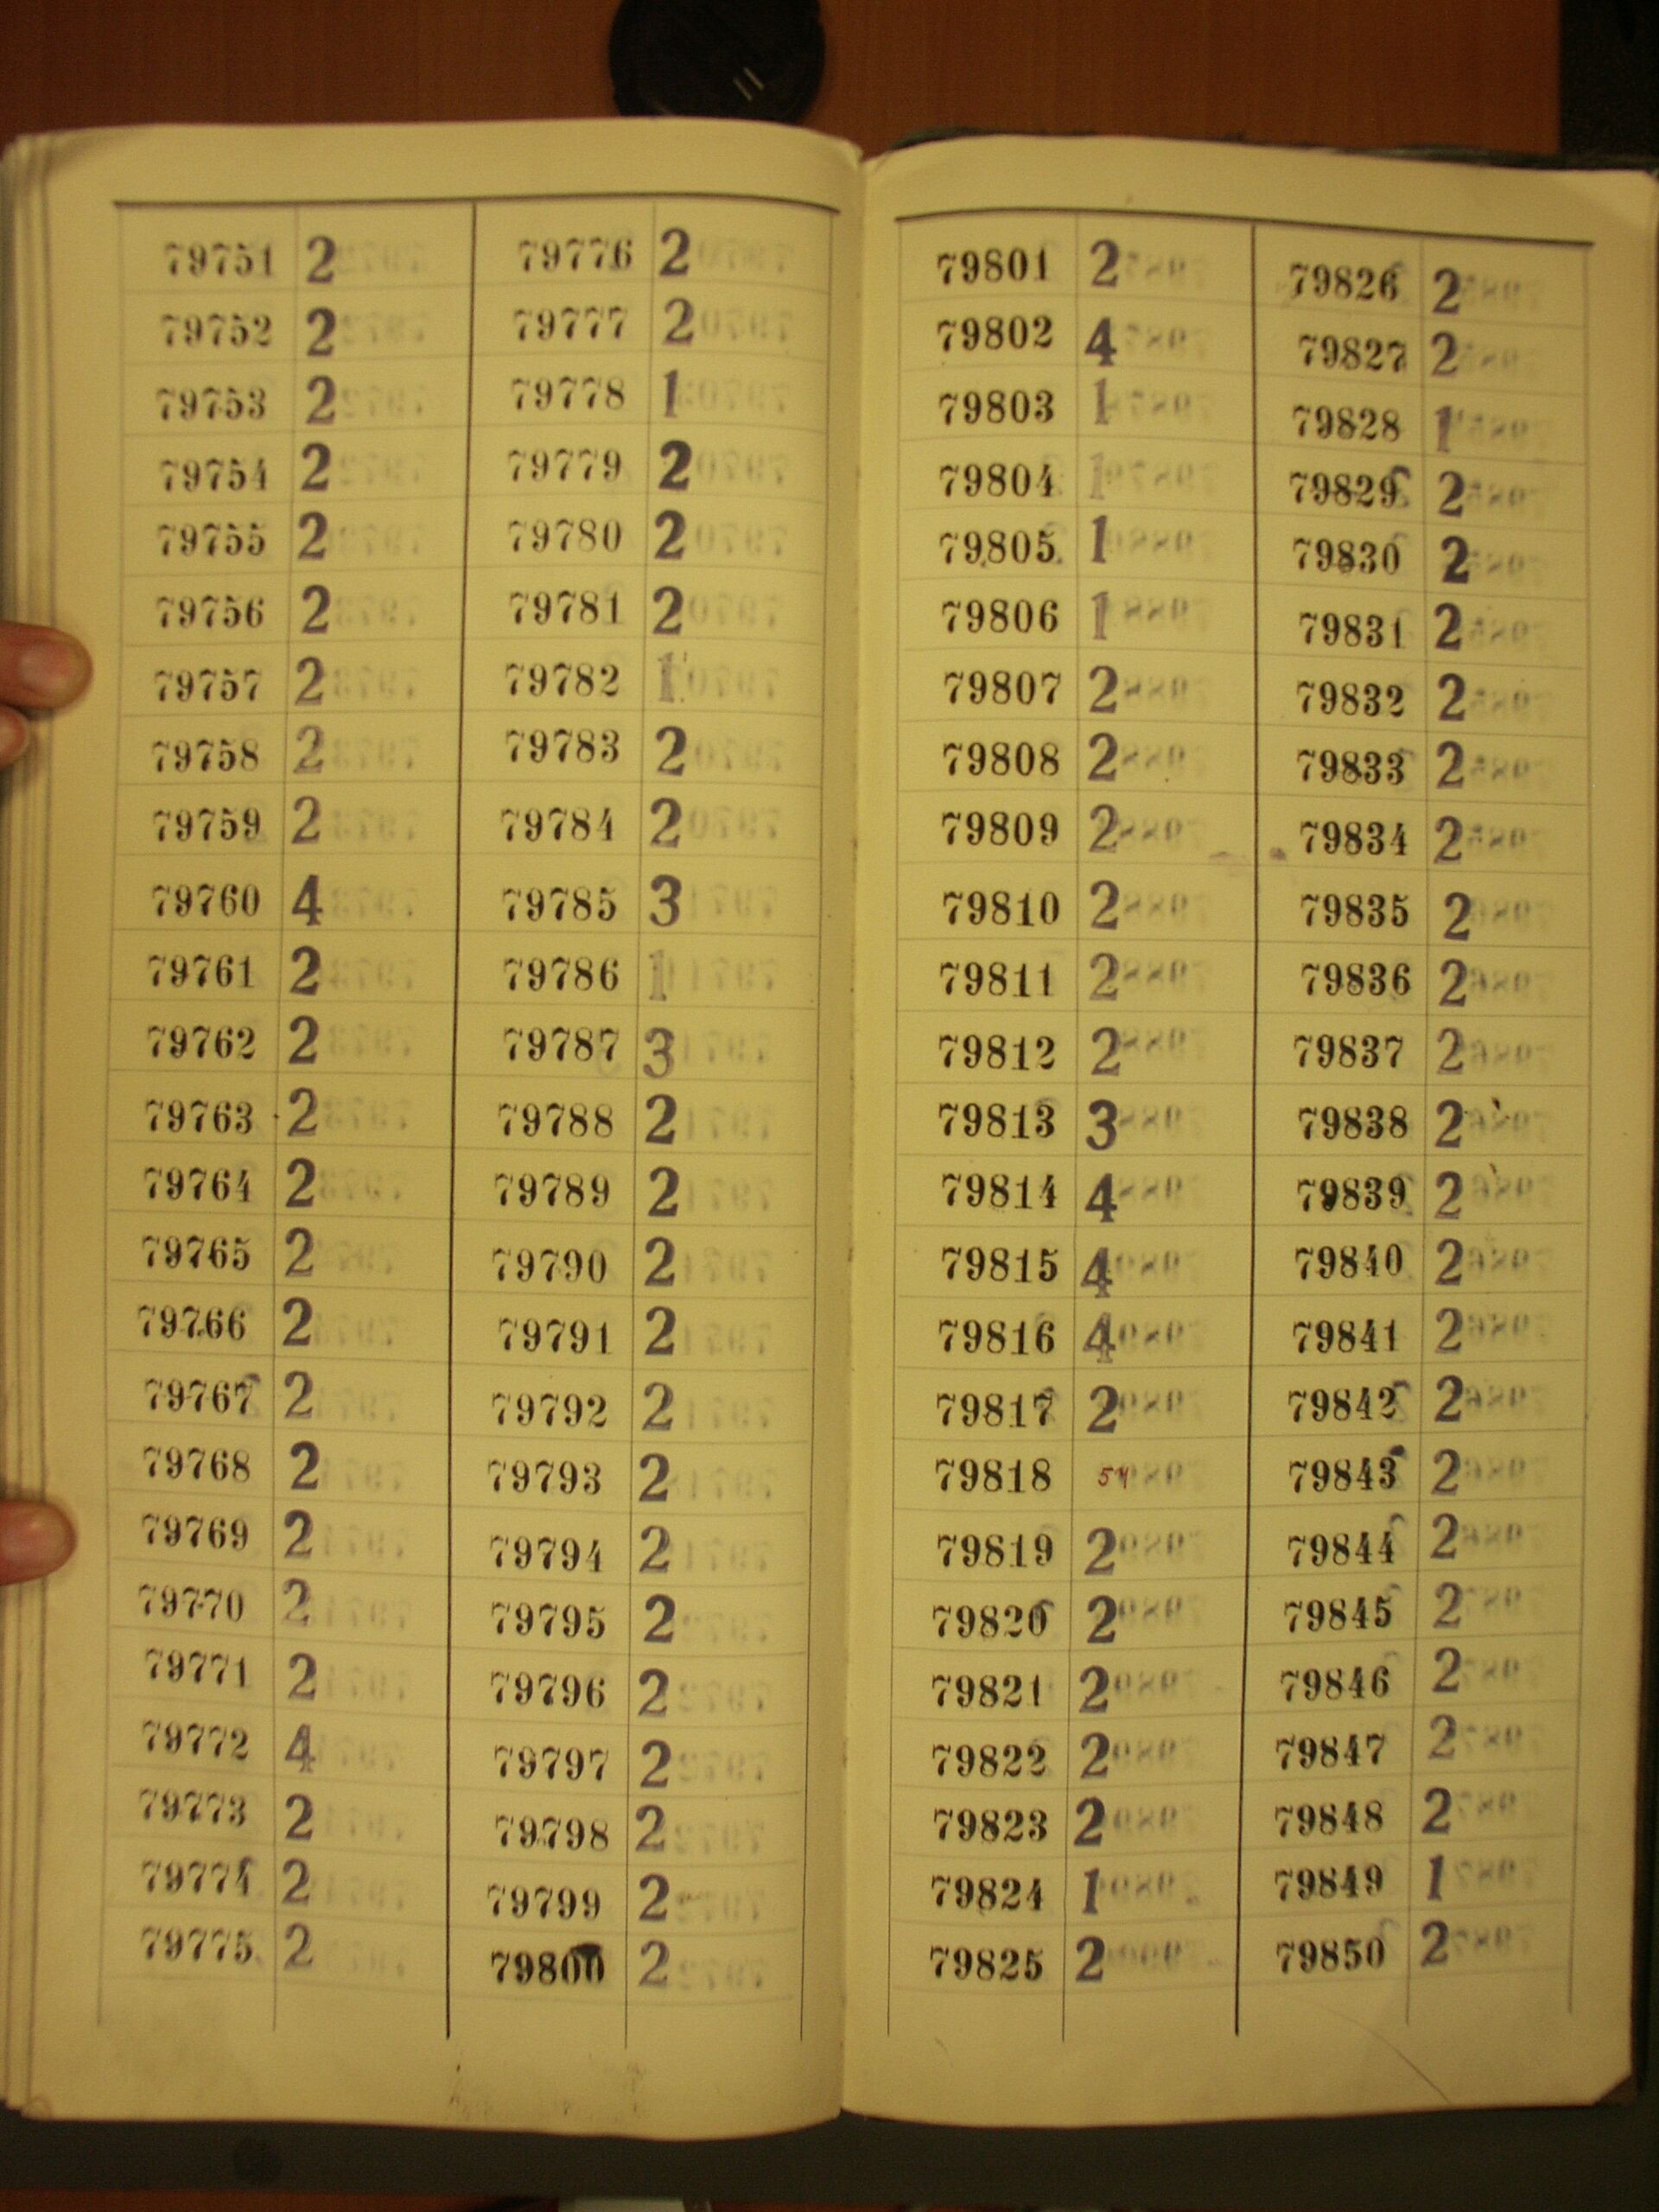 79751 2
79752 2
79753 2
79754 2
79755 2
79756 2
79757 2
79758 2
79759 2
79760 4
79761 2
79762 2
79763 2
79764 2
79765 2
79766 2
79767 2
79768 2
79769 2
79770 2
79771 2
79772 4
79773 2
79774 2
79775 2
79776 2
79777 2
79778 1
79779 2
79780 2
79781 2
79782 1
79783 2
79784 2
79785 3
79786 1
79787 3
79788 2
79789 2
79790 2
79791 2
79792 2
79793 2
79794 2
79795 2
79796 2
79797 2
79798 2
79799 2
79800 2
79801 2
79802 4
79803 1
79804 1
79805 1
79806 1
79807 2
79808 2
79809 2
79810 2
79811 2
79812 2
79813 3
79814 4
79815 4
79816 4
79817 2
79818
79819 2
79820 2
79821 2
79822 2
79823 2
79824 1
79825 2
79826 2
79827 2
79828 1
79829 2
79830 2
79831 2
79832 2
79833 2
79834 2
79835 2
79836 2
79837 2
79838 2
79839 2
79840 2
79841 2
79842 2
79843 2
79844 2
79845 2
79846 2
79847 2
79848 2
79849 1
79850 2